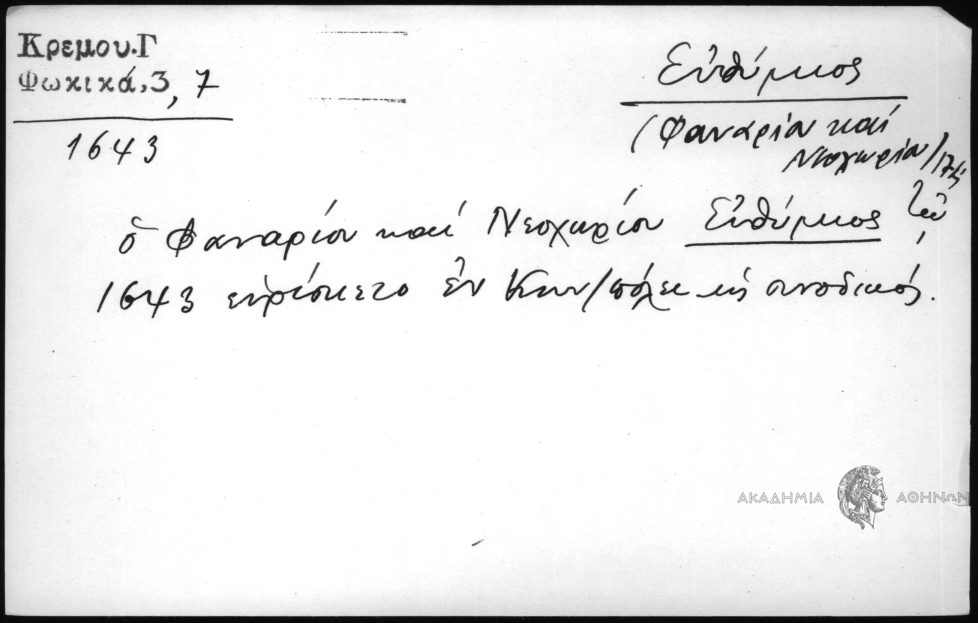 Κρεμου.Γ
Φωκικά,3, 7
1643
Εὐθύμιος
(Φαναρίου καί
Νεοχωρίου)
ὁ Φαναρίου καί Νεοχωρίου Εὐθύμιος τῷ
1643 εὑρίσκετο ἐν Κων/πόλει ὡς συνοδικός.
ΑΚΑΔΗΜΙΑ ΑΘΗΝΩΝ